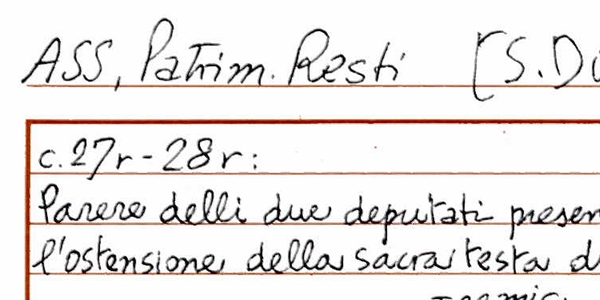 ASS, Patrim. Resti [S. Do
c. 27r - 28r:
Parere delli due deputati presen
l'ostensione della sacra testa d